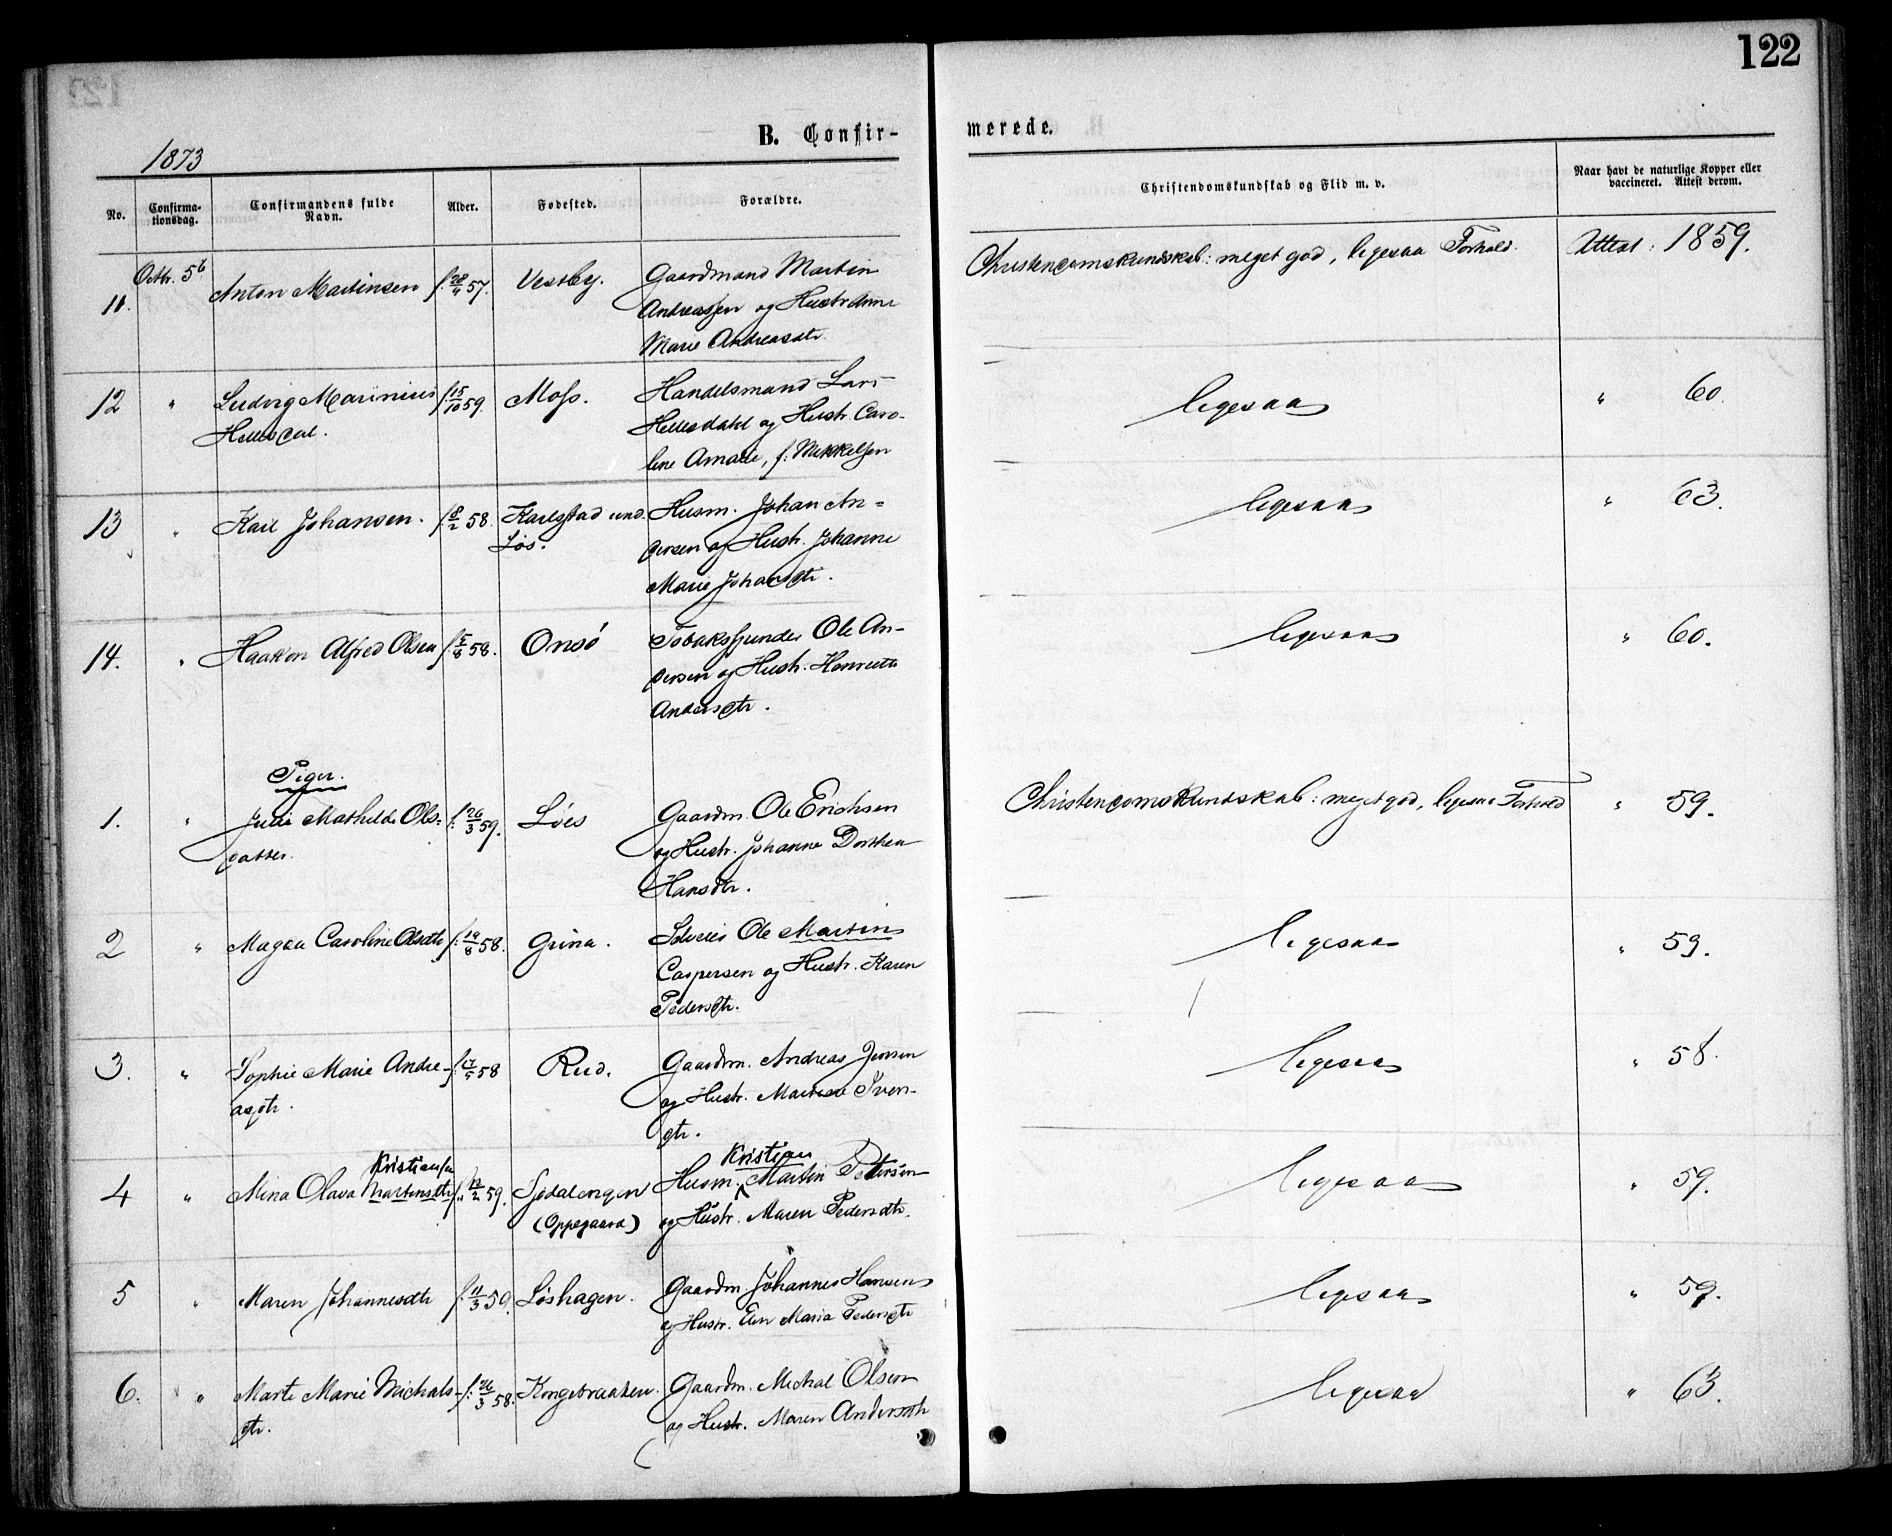 122
B. Confir-
merede.
1873
No.
Confirma-
tionsdag.
Confirmandens fulde
Navn.
Alder.
Fødested.
Forældre.
Christendomskundskab og Flid m. v.
Naar havt de naturlige Kopper eller
vaccineret. Attest derom.
11. Octbr. 5 Anton Martinsen f. 57. Vestby. Gaardmand Martin Christendomskundskab: meget god, ligesaa Forhold. Attest: 1859.
Andreassen og Hustr Anne
Marie Andreasdtr.
12 " Ludvig Marinius f. 15/10 59. Moss. Handelsmand Lars ligesaa " 60.
Hellesdal. Hellesdahl og Hustr. Caro-
line Amalie, f. Mikkelsen
13 " Karl Johansen. f. 8/2 58. Karlsstad und. Husm. Johan An- ligesaa " 63.
Løs. dersen og Hustr. Johanne
Marie Johansdtr.
14. " Haakon Alfred Olsen f. 5/8 58. Onsø Tobaksspinder Ole An- ligesaa " 60.
dersen og Hustr. Henriette
Andersdtr.
Piger.
1. " Julie Mathilde Ols- f. 26/3 59. Løes Gaardm. Ole Erichsen Christendomskundskab: meget god, ligesaa Forhold " 59.
datter. og Hustr. Johanne Dorthea
Hansdtr.
2 " Magda Caroline Olsdtr f. 19/8 58. Grina. Ole Martin ligesaa " 59.
Caspersen og Hustr. Karen
Pedersdtr.
3. " Sophie Marie Andre- f. 58 Rud. Gaardm. Andreas Jensen ligesaa " 58.
asdtr. og Hustr. Sven-
dtr.
Kristiansen Kristian
4 " Mina Olava Martinsdtr f. 59. Sjødalengen Husm. Martin Petersen ligesaa " 59.
(Oppegaard) og Hustr. Maren Pedersdtr.
5 " Maren Johannesdtr f. 11/3 59. Løshagen. Gaardm Johannes Hansen ligesaa " 59.
og Hustr. Maria Pedersdtr
6. " Marte Marie Michals- f. 26/3 58. Kongebraaten. Gaardm. Michal Olsen ligesaa " 63.
dtr. og Hustr. Maren Andersdtr